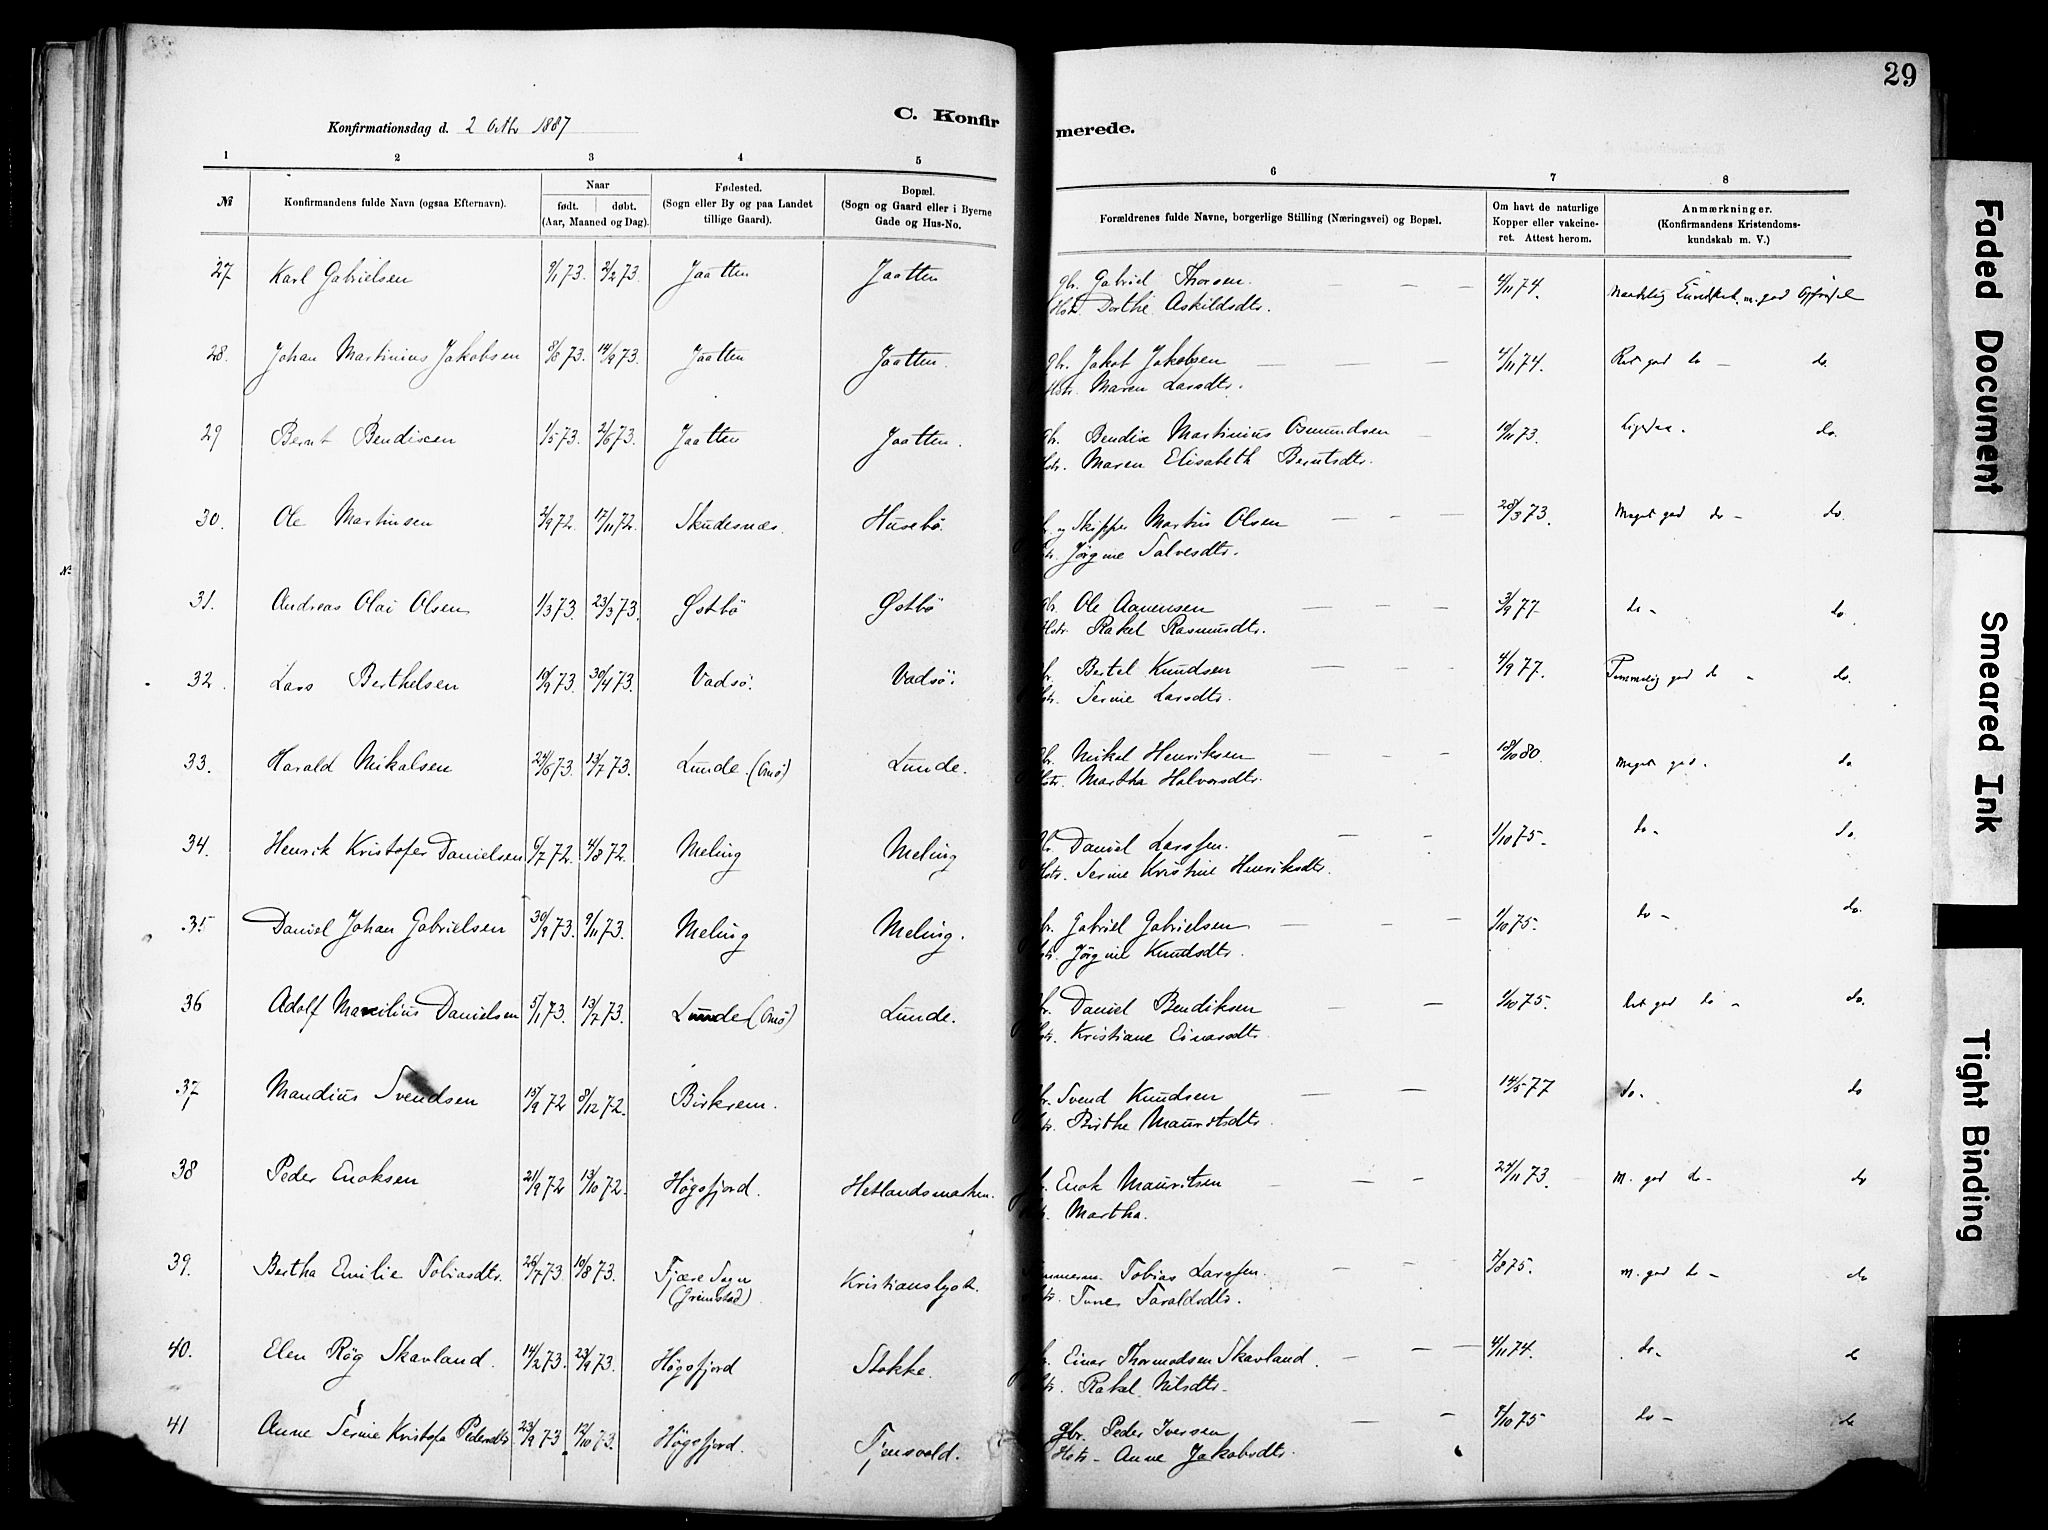 29
Konfirmationsdag d. 2 Octbr 1887
C. Konfirmerede.
1 2 3 4 5 6 7 8
№ Konfirmandens fulde Navn (ogsaa Efternavn). Naar født. døbt. (Aar, Maaned og Dag). Fødested. (Sogn eller By og paa Landet tillige Gaard). Bopæl. (Sogn og Gaard eller i Byerne Gade og Hus-No. Forældrenes fulde Navne, borgerlige Stilling (Næringsvei) og Bopæl. Om havt de naturlige Kopper eller vakcineret. Attest herom. Anmærkninger. (Konfirmandens Kristendomskundskab m. V.)
27 Karl Gabrielsen 9/1 73. 2/2 73 Jaatten Jaatten gbr. Gabriel Thorsen. — — — 4/11 74.
Hstr. Dorthe Askildsdtr.
28. Johan Martinius Jakobsen 8/8 73. 14/9 73. Jaatten Jaatten. gbr. Jakob Jakobsen — — — 4/11 74. Ret god do — do.
Hstr. Maren Larsdtr.
29 Bernt Bendixen 1/5 73. 2/6 73. Jaatten Jaatten. gbr. Bendix Martinius Osmundsen — 10/11 73. Ligesaa. do.
Hstr. Maren Elisabeth Berntsdtr.
30. Ole Martinsen 2/9 72. 17/11 72. Skudesnæs. Husebö. Skipper Martin Olsen — — — 28/3 73. Meget god do - do.
Jørgine Salvesdtr.
31. Andreas Olai Olsen 1/3 73. 23/3 73. Østbö Østbö gbr. Ole Aanensen — — — 3/9 77 do - do
Hstr. Rakel Rasmusdtr.
32. Lars Berthelsen 10/9 73. 30/4 73. Vadsö. Vadsö. Bertel Knudsen — — — 4/9 77. Temmelig god do - do.
Serine Larsdtr.
33. Harald Mikalsen 24/6 73. 13/7 73. Lunde. (Omö) Lunde. gbr. Mikel Henriksen — — — 18/10 80. Meget god. do
Hstr. Martha Halvorsdtr.
34. Henrik Kristofer Danielsen 6/7 72. 4/8 72. Meling Meling Daniel Larssen. — — 1/10 75. do - do.
Hstr. Serine Kristine Henriksdtr.
35 Daniel Johan Gabrielsen 30/9 73. 9/11 73. Meling Meling. Gabriel Gabrielsen — — 1/10 75. do - do.
Jørgine Knudsdtr.
36 Adolf Maxilius Danielsen 5/1 73. 13/7 73. Lunde (Omö) Lunde. Daniel Bendiksen — — 1/10 75. Ret god do - do.
Kristiane Einarsdtr.
37 Mandius Svendsen 15/9 72 8/12 72. Birkrem. Svend Knudsen — — 14/5 77 do - do
Birthe Mauritsdtr.
38 Peder Enoksen 21/9 72 13/10 72. Högsfjord. Hetlandsmarken. Enok Mauritsen — — — 24/11 73. M. god do - do
Martha.
39. Bertha Emilie Tobiasdtr. 26/7 73 10/8 73. Fjære Sogn (Grimstad) Kristianslyst. Tobias Larssen. — — 7/8 75. M. god do - do
Tone Taraldsdtr.
40. Elen Røg Skavland. 14/2 73. 23/9 73. Högsfjord Stokke. Einar Thormodsen Skavland. — — — 4/11 74. do - do
Rakel Nilsdtr.
41 Anne Serine Kristofa Pedersdtr. 23/9 73 12/10 73. Högsfjord. Tjensvold. gbr. Peder Iversen — — 7/10 75 do - do
Hstr - Anne Jakobsdtr.
Faded Document
Smeared Ink
Tight Binding